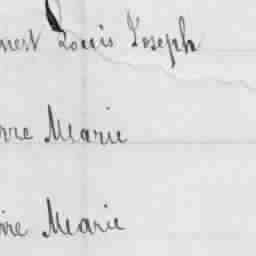 nest Louis Joseph
rre Marie
rre Marie